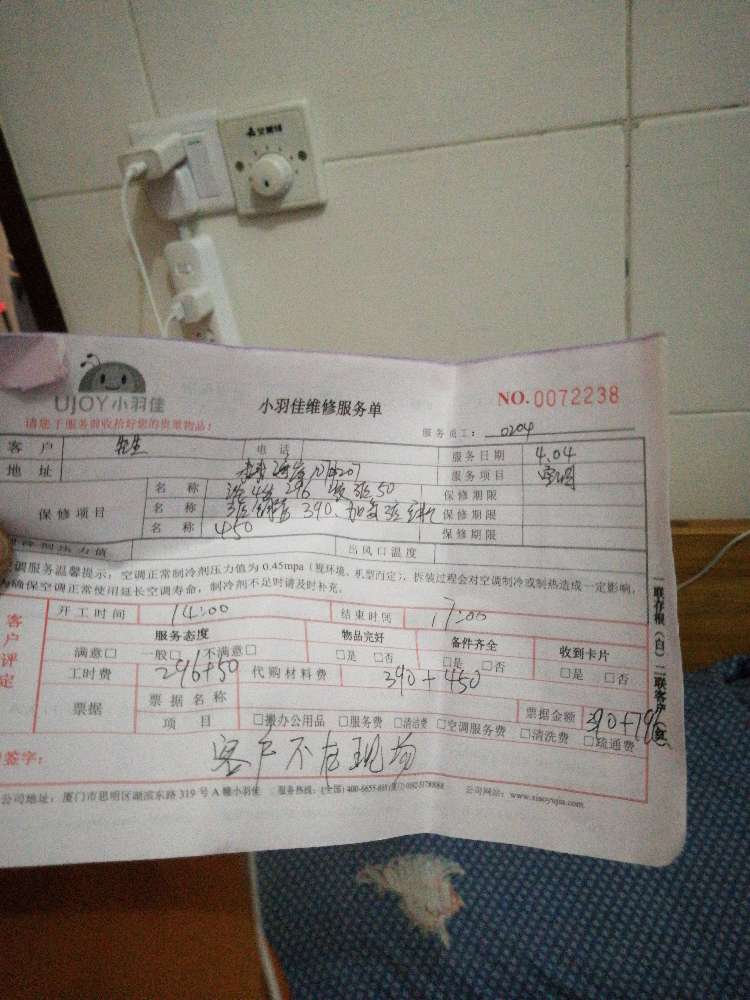 UJOY小羽佳
小羽佳维修服务单
NO.0072238
请您于服务前收拾好您的贵重物品!
服务员工: 0204
客户 先生 电话 服务日期 4.04
地址 服务项目 空调
保修项目 名称 296 50 保修期限
名称 390、加 保修期限
名称 450 保修期限
压力值 出风口温度
调服务温馨提示:空调正常制冷剂压力值为0.45mpa(视环境、机型而定),拆装过程会对空调制冷或制热造成一定影响,
为确保空调正常使用延长空调寿命,制冷剂不足时请及时补充。
客户评定
开工时间 14:00 结束时间 17:00
服务态度 物品完好 备件齐全 收到卡片
满意□ 一般□ 不满意□ □是 □否 □是 □否 □是 □否
工时费 296+50 代购材料费 390+450
票据 票据名称 票据金额 390+796
项目 □搬办公用品 □服务费 □清洁费 □空调服务费 □清洗费 □疏通费
签字: 客户不在现场
公司地址:厦门市思明区湖滨东路319号A幢小羽佳 服务热线:(全国)400-6655-885 公司网站:www.xiaoyujia.com
一联存根(白)二联客户(红)